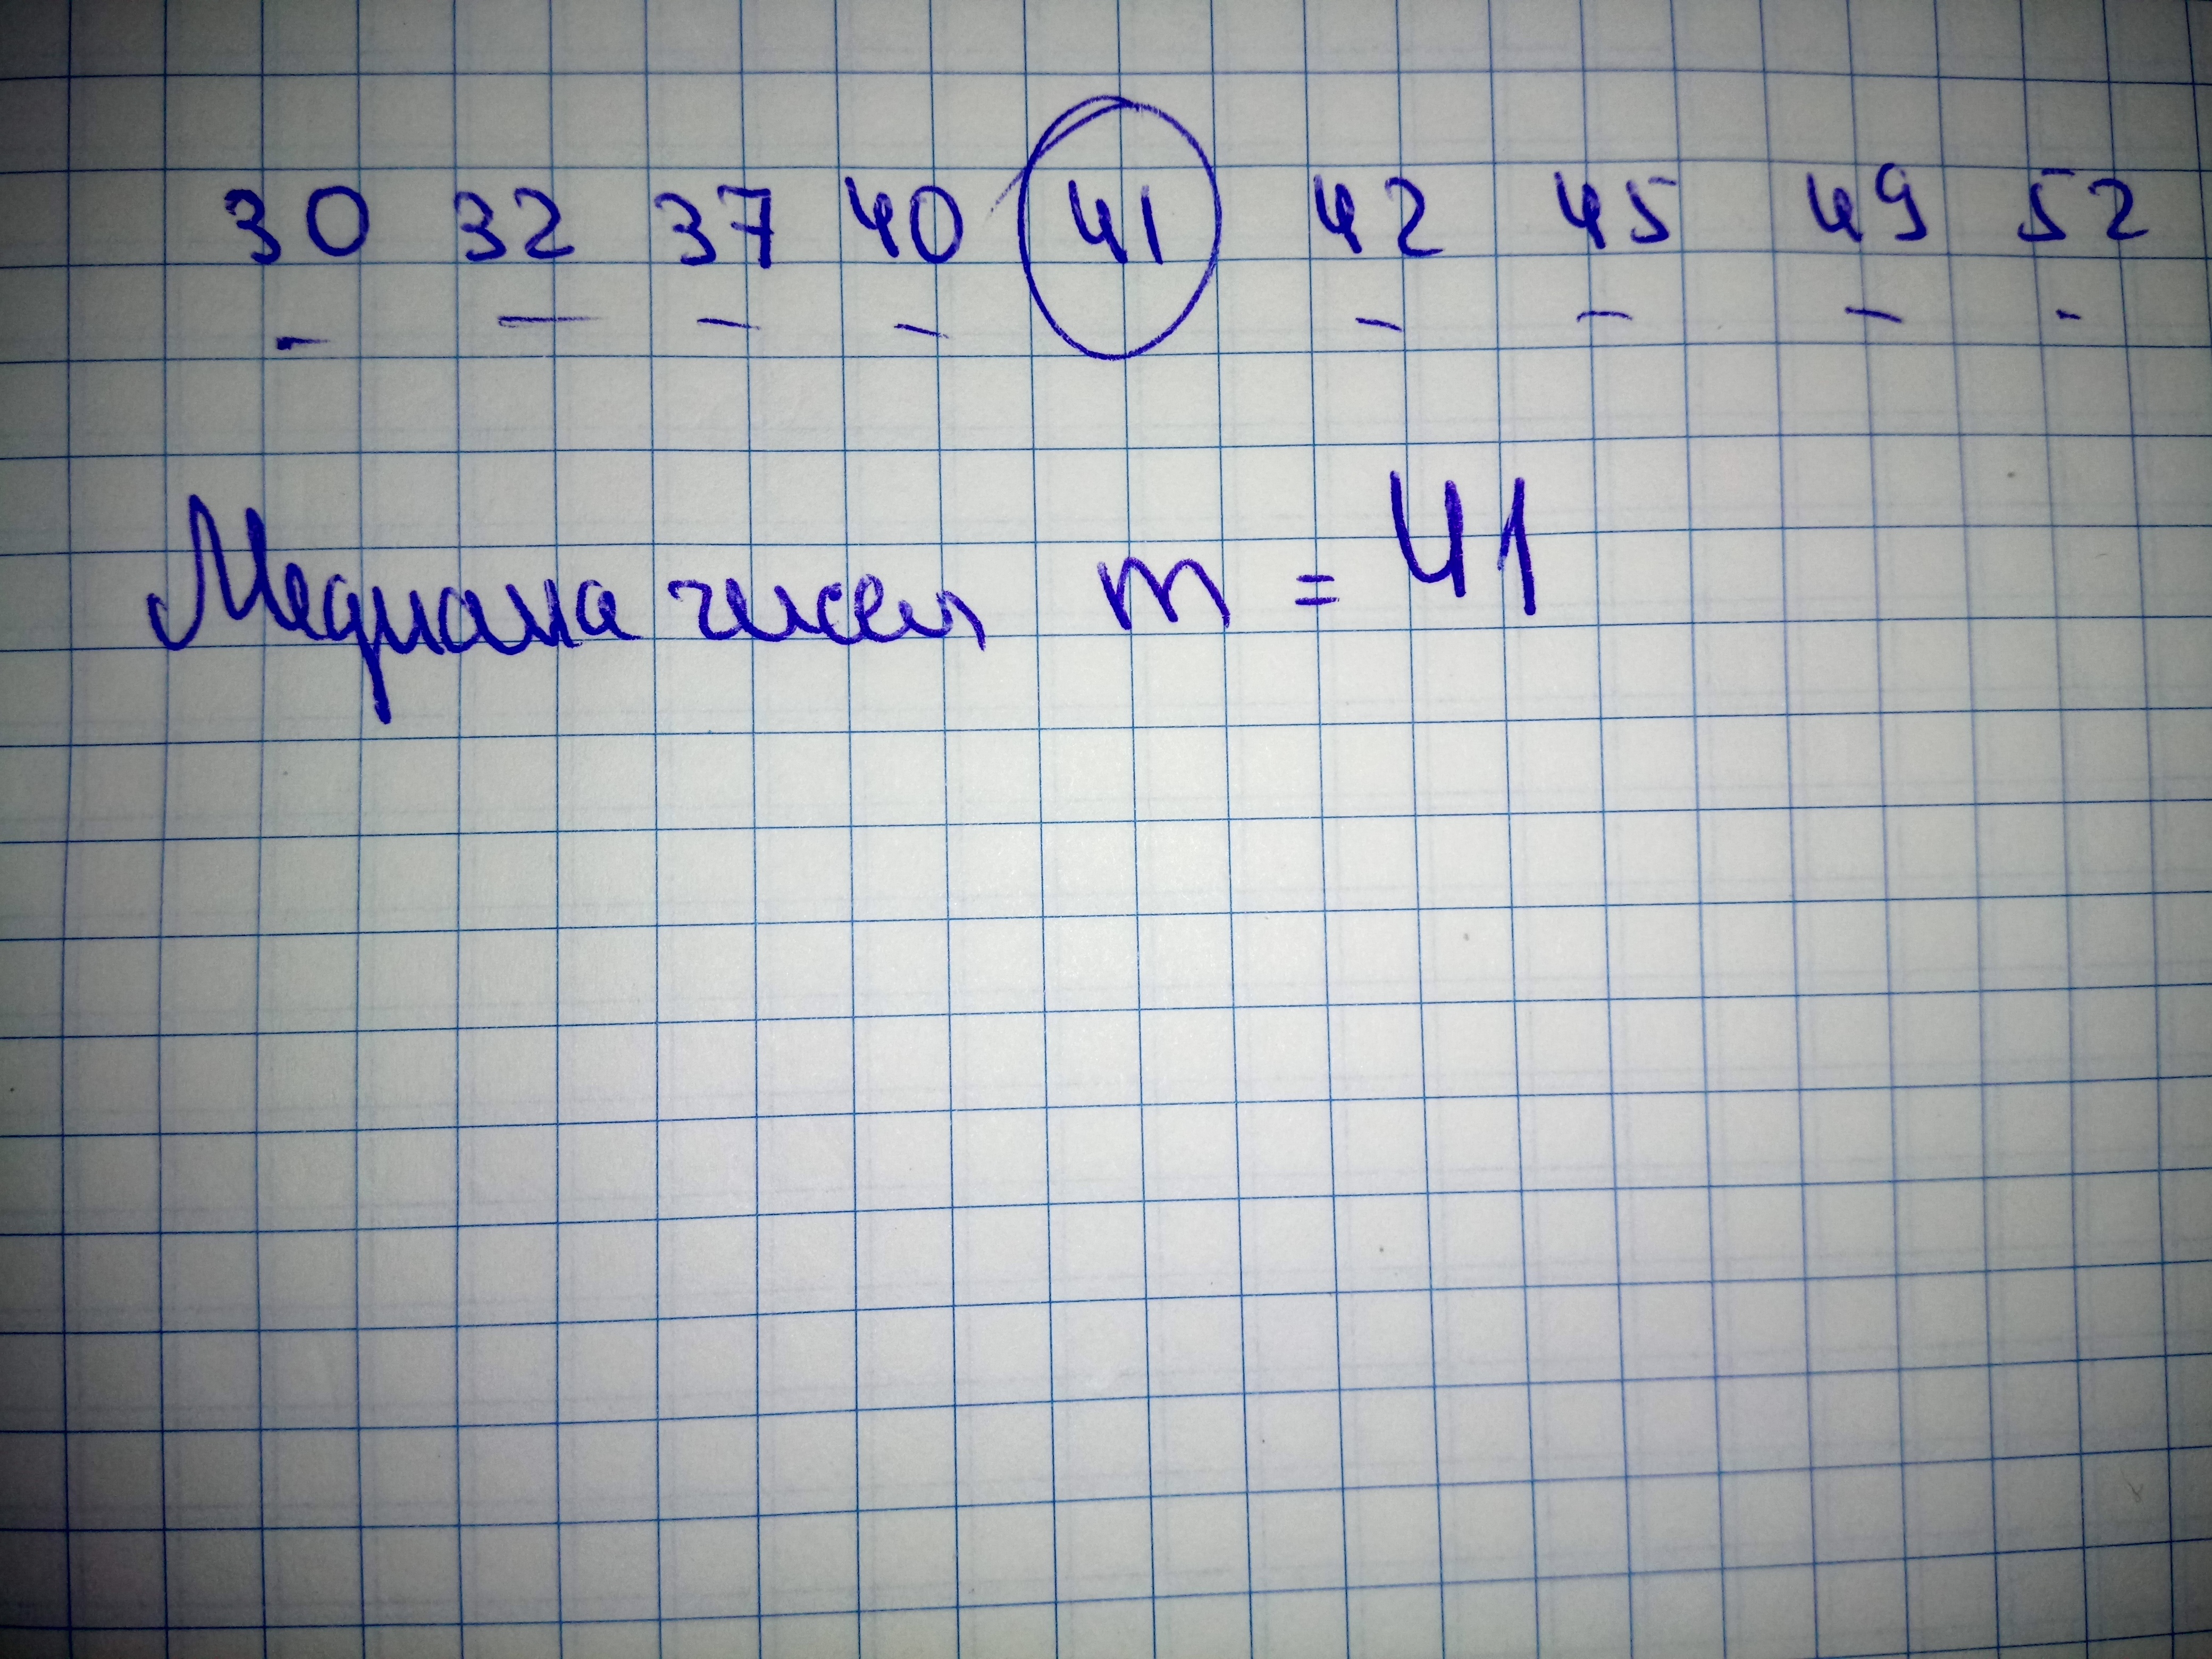 30 32 37 40 41 42 45 49 52
Медиана чисел m = 41